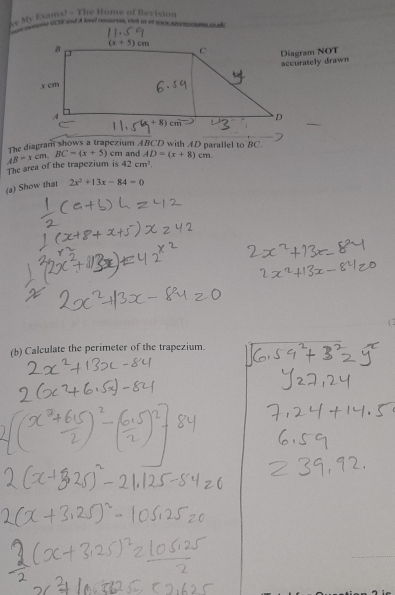 My Exams! - The Home of Revision
11.59
(x + 5) cm
B
C
Diagram NOT
accurately drawn
x cm
6.59
y
A
D
11.59
+ 8) cm
3
The diagram shows a trapezium ABCD with AD parallel to BC.
AB = x cm, BC = (x + 5) cm and AD = (x + 8) cm.
The area of the trapezium is 42 cm².
(a) Show that 2x² + 13x − 84 = 0
1/2 (a+b) h = 42
1/2 (x+8+x+5) x = 42
(2x² + 13x) = 42 ×2
2x²+13x − 84 = 0
2x²+13x = 84
2x²+13x − 84 = 0
(b) Calculate the perimeter of the trapezium.
2x²+13x − 84
2(x²+6.5x) − 84
2[(x²+6.5/2)² − (6.5/2)²] − 84
2(x+3.25)² − 21.125 − 84 = 0
2(x+3.25)² − 105.25 = 0
2/2 (x+3.25)² = 105.25/2
√6.59² + 3² = y²
y = 7.24
7.24 + 14.5
6.59
= 39.92.